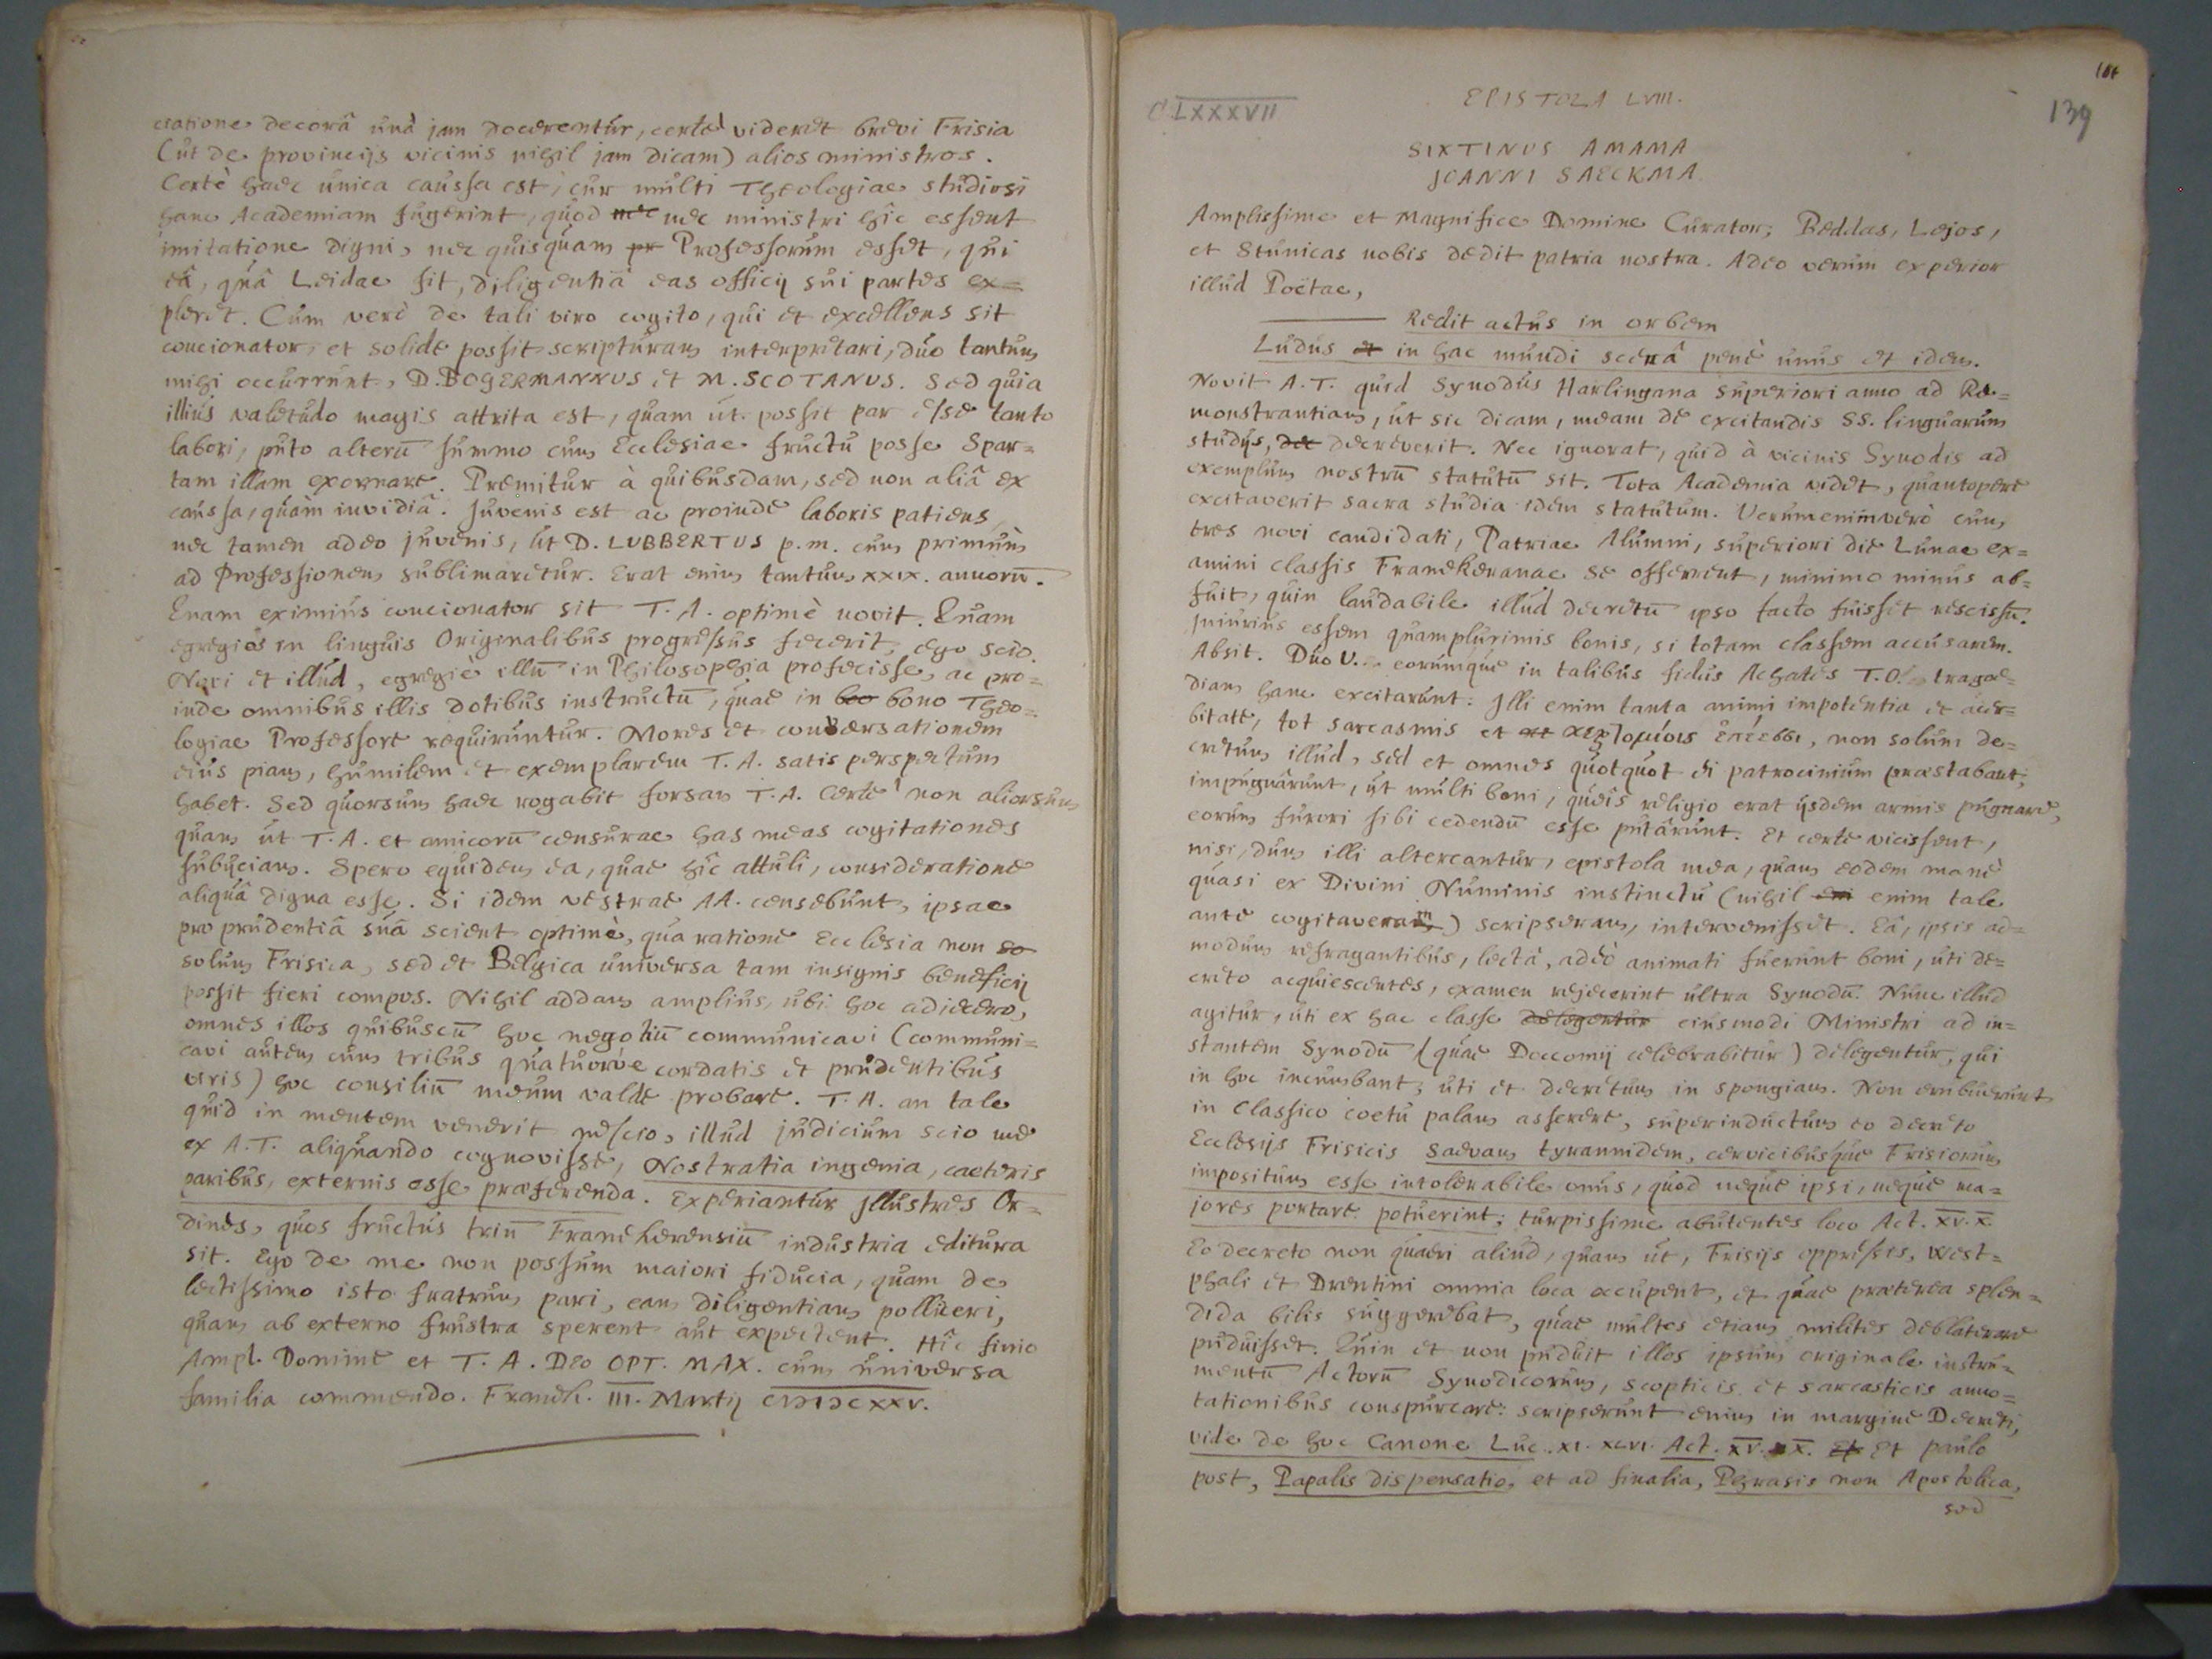 ersatione decorâ unà jam docerentur, certè videret brevi Frisia
(ut de provincijs vicinis nihil jam dicam) alios ministros.
Certè haec unica caussa est, cur multi Theologiae studiosi
hanc Academiam fugerint, quod nec nec ministri hîc essent
imitatione digni, nec quisquam pr Professorum esset, qui
eâ, quâ Leidae fit, diligentiâ eas officij sui partes ex=
pleret. Cum verò de tali viro cogito, qui et excellens sit
concionator, et solidè possit scripturam interpretari, duo tantum
mihi occurrunt, D. BOGERMANNUS et M. SCOTANUS. Sed quia
illius valetudo magis attrita est, quam ut possit par esse tanto
labori, puto alterū summo cum Ecclesiae fructu posse Spar=
tam illam exornare. Premitur à quibusdam, sed non aliâ ex
caussa, quàm invidiâ. Juvenis est ac proinde laboris patiens,
nec tamen adeo juvenis, ut D. LUBBERTUS p.m. cum primùm
ad Professionem sublimaretur. Erat enim tantum XXIX. annorū.
Quam eximius concionator sit T. A. optimè novit. Quam
egregios in linguis Originalibus progressus fecerit, ego scio.
Novi et illud, egregiè illū in Philosophia profecisse, ac pro=
inde omnibus illis dotibus instructū, quae in beo bono Theo=
logiae Professore requiruntur. Mores et conversationem
eius piam, humilem et exemplarem T. A. satis perspectum
habet. Sed quorsum haec rogabit forsan T. A. Certè non aliorsum
quam ut T. A. et amicorū censurae has meas cogitationes
subijciam. Spero equidem ea, quae hîc attuli, consideratione
aliquâ digna esse. Si idem vestrae AA. censebunt, ipsae
pro prudentiâ suâ scient optimè, qua ratione Ecclesia non so
solum Frisica, sed et Belgica universa tam insignis beneficij
possit fieri compos. Nihil addam amplius, ubi hoc adjecero,
omnes illos quibuscū hoc negotiū communicavi (communi=
cavi autem cum tribus quatuorve cordatis et prudentibus
viris) hoc consiliū meum valdè probare. T. A. an tale
quid in mentem venerit nescio, illud judicium scio me
ex A.T. aliquando cognovisse, Nostratia ingenia, caeteris
paribus, externis esse praeferenda. Experiantur Jllustres Or=
dines, quos fructus triū Franekerensiū industria editura
sit. Ego de me non possum maiori fiducia, quam de
lectissimo isto fratrum pari, eam diligentiam polliceri,
quam ab externo frustra sperent aut expectent. Hîc finio
Ampl. Domine et T. A. DEO OPT. MAX. cum universa
familia commendo. Franek. III. Martij CIƆIƆCXXV.
CLXXXVII
EPISTOLA LVIII.
139
SIXTINUS AMAMA
JOANNI SAECKMA.
Amplissime et Magnifice Domine Curator, Beddas, Lejos,
et Stunicas nobis dedit patria nostra. Adeo verum experior
illud Poëtae,
Redit actus in orbem
Ludus et in hac mundi scenâ penè unus et idem.
Novit A.T. quid Synodus Harlingana superiori anno ad Re=
monstrantiam, ut sic dicam, meam de excitandis SS. linguarum
studijs, dec decreverit. Nec ignorat, quid à vicinis Synodis ad
exemplum nostrū statutū sit. Tota Academia videt, quantopere
excitaverit sacra studia idem statutum. Verumenimverò cum
tres novi candidati, Patriae Alumni, superiori die Lunae ex=
amini classis Franekeranae se offerrent, minimo minus ab=
fuit, quin laudabile illud decretū ipso facto fuisset rescissū.
Jniurius essem quamplurimis bonis, si totam classem accusarem.
Absit. Duo V... eorumque in talibus fidus Achates T.O. tragae=
diam hanc excitarunt. Jlli enim tanta animi impotentia et acer=
bitate, tot sarcasmis et non solum de=
cretum illud, sed et omnes quotquot ei patrocinium praestabant,
impugnârunt, ut multi boni, queîs religio erat ijsdem armis pugnare,
eorum furori sibi cedendū esse putârunt. Et certè vicissent,
nisi, dum illi altercantur, epistola mea, quam eodem manè
quasi ex Divini Numinis instinctu (nihil eni enim tale
ante cogitaveram) scripseram, intervenisset. Eâ, ipsis ad=
modum refragantibus, lectâ, adeò animati fuerunt boni, uti de=
creto acquiescentes, examen rejecerint ultra Synodū. Nunc illud
agitur, uti ex hac classe delegentur eiusmodi Ministri ad in=
stantem Synodū (quae Doccomij celebrabitur) delegentur, qui
in hoc incumbant, uti et decretum in spongiam. Non erubuerunt
in Classico coetu palam asserere, superinductum eo decreto
Ecclesijs Frisicis saevam tyrannidem, cervicibusque Frisiorum
impositum esse intolerabile onus, quod neque ipsi, neque ma=
jores portare potuerint; turpissime abutentes loco Act. XV. X.
Eo decreto non quaeri aliud, quam ut, Frisijs oppressis, West=
phali et Drentini omnia loca occupent, et quae praeterea splen=
dida bilis suggerebat, quae multos etiam milites deblaterare
puduisset. Quin et non puduit illos ipsum originale instru=
mentū Actorū Synodicorum, scopticis et sarcasticis anno=
tationibus conspurcare: scripserunt enim in margine Decreti,
vide de hoc Canone Luc. XI. XLVI. Act. XV. X. Et Et paulo
post, Papalis dispensatio, et ad finalia, Phrasis non Apostolica,
sed